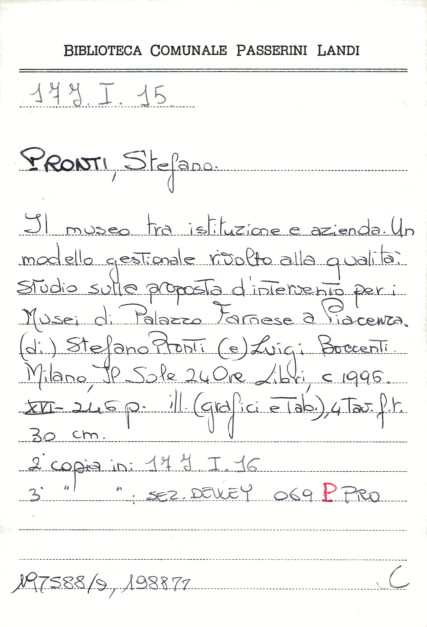 BIBLIOTECA COMUNALE PASSERINI LANDI
17J. I. 15
PRONTI, Stefano.
Il museo tra istituzione e azienda. Un
modello gestionale rivolto alla qualità:
studio sulla proposta d'intervento per i
Musei di Palazzo Farnese a Piacenza.
(di) Stefano Pronti (e) Luigi Boccenti
Milano, Il Sole 24 Ore Libri, c 1996.
XVI- 246 p. ill. (grafici e Tab.), 4 Tav. f.t.
30 cm.
2ª copia in: 17J. I. 16
3ª " " : SEZ. DEWEY 069 P PRO
197588/9, 198877
C